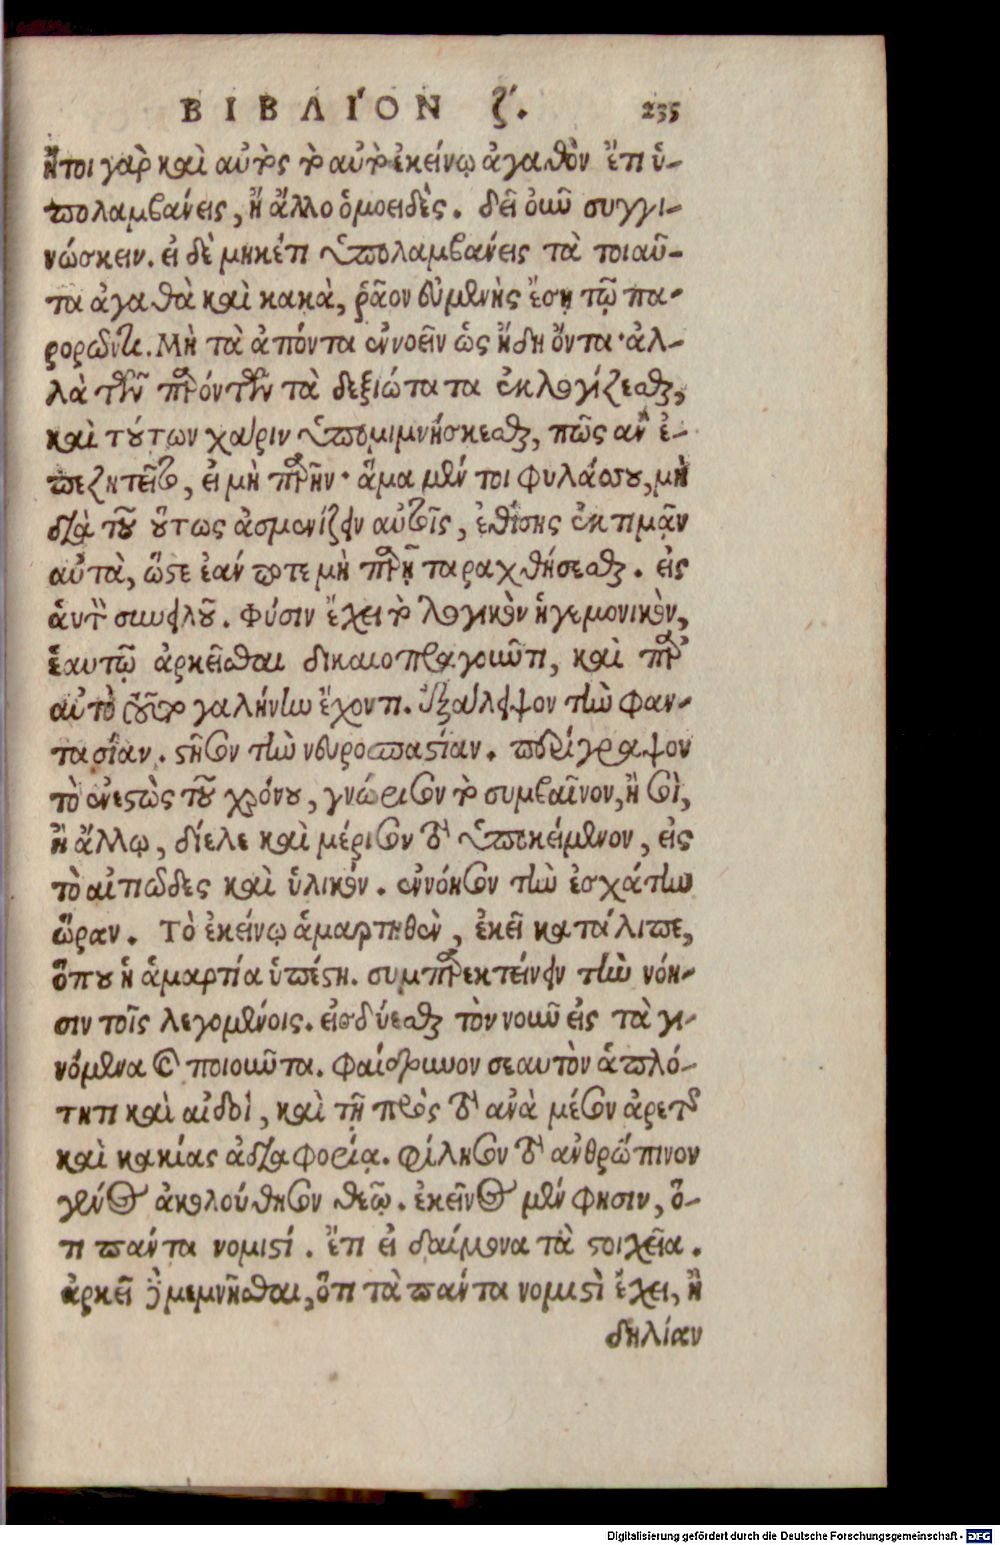 ΒΙΒΛΙ´ΟΝ ζ´. 235
ἤτοι γὰρ καὶ αὐτὸς τὸ αὐτὸ ἐκείνῳ ἀγαθὸν ἔτι ὑ-
πολαμβάνεις, ἢ ἄλλο ὁμοειδὲς. δεῖ οὖν συγγι-
νώσκειν. εἰ δὲ μηκέτι ὑπολαμβάνεις τὰ τοιαῦ-
τα ἀγαθὰ καὶ κακὰ, ῥᾷον εὐμενὴς ἔσῃ τῷ πα-
ρορῶντι. Μὴ τὰ ἀπόντα ἐννοεῖν ὡς ἤδη ὄντα· ἀλ-
λὰ τῶν παρόντων τὰ δεξιώτατα ἐκλογίζεσθαι,
καὶ τούτων χάριν ὑπομιμνήσκεσθαι, πῶς ἂν ἐ-
πεζητεῖτο, εἰ μὴ παρῆν· ἅμα μέν τοι φυλάσσου, μὴ
διὰ τοῦ οὕτως ἀσμενίζειν αὐτοῖς, ἐθίσῃς ἐκτιμᾷν
αὐτὰ, ὥστε ἐάν ποτε μὴ παρῇ ταραχθήσεσθαι. εἰς
ἁυτὸν συνειλοῦ. Φύσιν ἔχει τὸ λογικὸν ἡγεμονικὸν,
ἑαυτῷ ἀρκεῖσθαι δικαιοπραγοῦντι, καὶ παρ'
αὐτὸ τοῦτο γαλήνην ἔχοντι. ἐξάλειψον τὴν φαν-
τασίαν. στῆσον τὴν νευροσπαστίαν. περίγραψον
τὸ ἐνεστὼς τοῦ χρόνου, γνώρισον τὸ συμβαῖνον, ἢ σοὶ,
ἢ ἄλλῳ, δίελε καὶ μέρισον τὸ ὑποκείμενον, εἰς
τὸ αἰτιῶδες καὶ ὑλικόν. ἐννόησον τὴν ἐσχάτην
ὥραν. Τὸ ἐκείνῳ ἁμαρτηθὲν, ἐκεῖ κατάλιπε,
ὅπου ἡ ἁμαρτία ὑπέστη. συμπαρεκτείνειν τὴν νόη-
σιν τοῖς λεγομένοις. εἰσδύεσθαι τὸν νοῦν εἰς τὰ γι-
νόμενα καὶ ποιοῦντα. Φαίδρυνον σεαυτὸν ἁπλό-
τητι καὶ αἰδοῖ, καὶ τῇ πρὸς τὸ ἀνὰ μέσον ἀρετῆς
καὶ κακίας ἀδιαφορίᾳ. Φίλησον τὸ ἀνθρώπινον
γένος ἀκολούθησον θεῷ. ἐκεῖνος μέν φησιν, ὅ-
τι πάντα νομιστί. ἔτι εἰ δαίμονα τὰ στοιχεῖα.
ἀρκεῖ δὲ μεμνῆσθαι, ὅτι τὰ πάντα νομιστὶ ἔχει, ἢ
δηλίαν
Digitalisierung gefördert durch die Deutsche Forschungsgemeinschaft - DFG